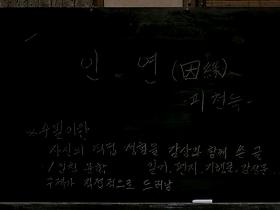 인 연 (因緣)
- 피천득 -
※ 수필이란
자신의 직접 체험을 감상과 함께 쓴 글
/ 문학 일기, 편지, 기행문, 감상문...
주제가 직접적으로 드러남